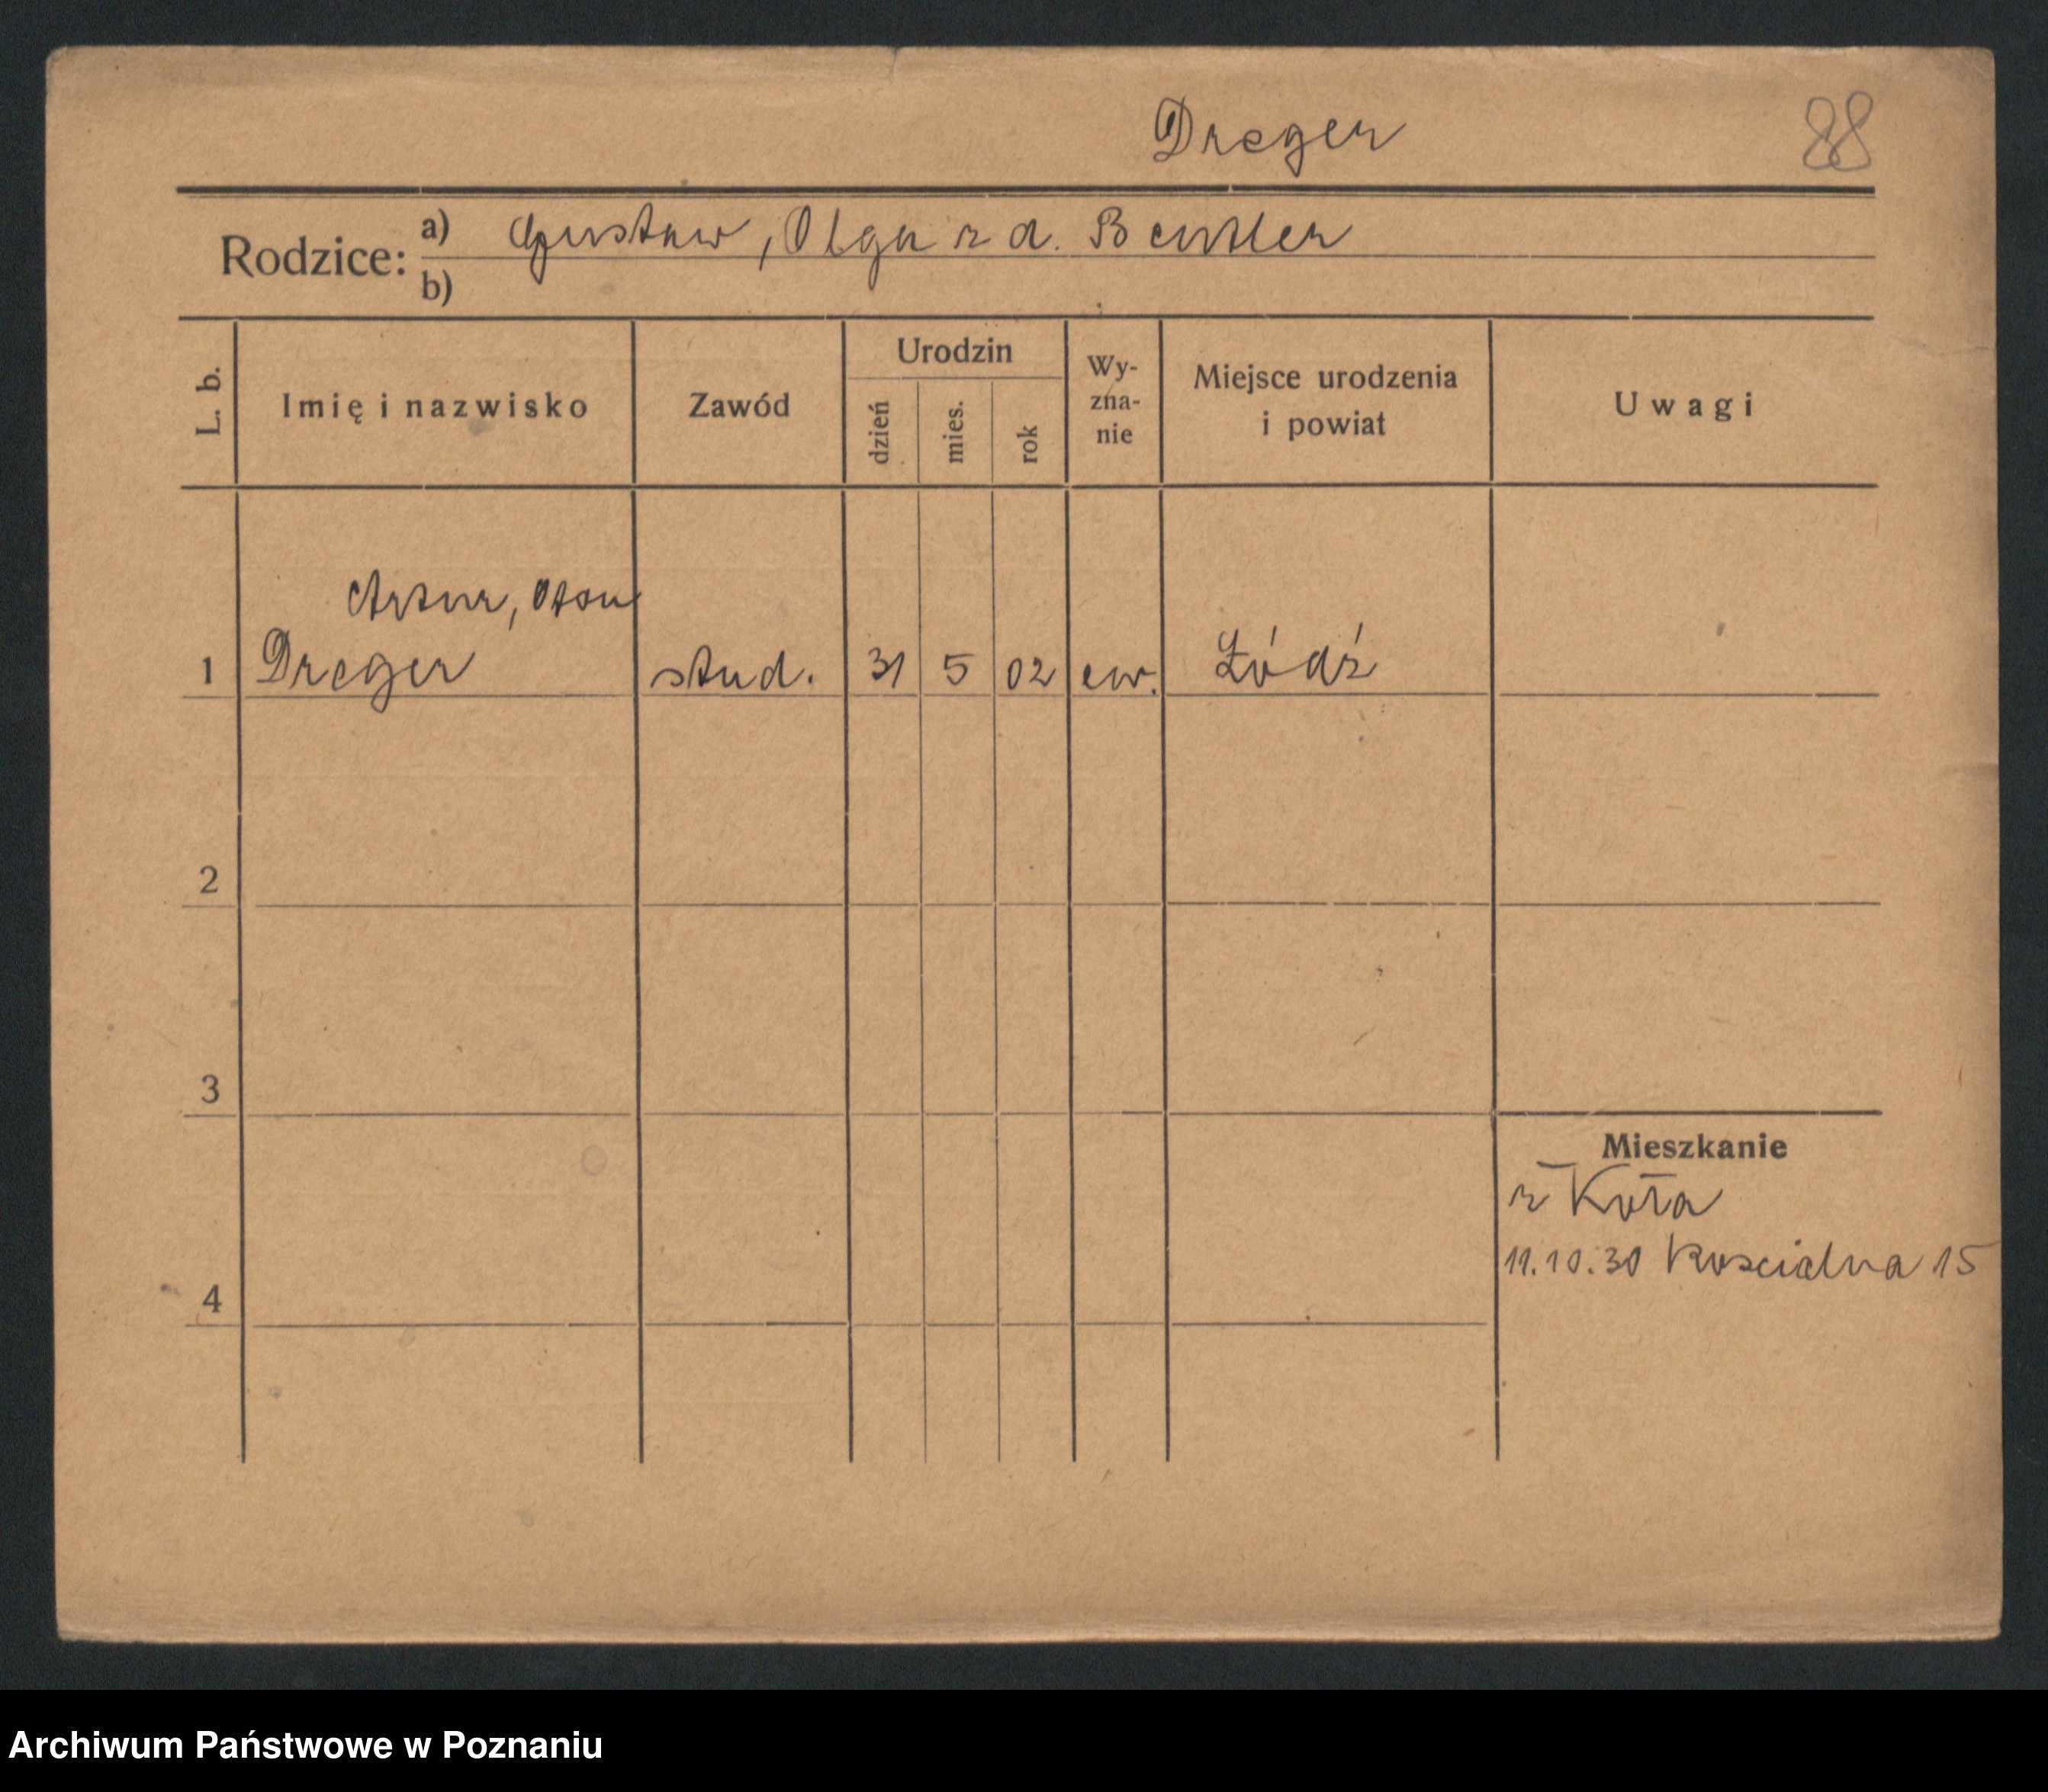 Dreger 88
Rodzice: a) Gustaw, Olga z d. Beutler
b)
L. b. Imię i nazwisko Zawód Urodzin dzień mies. rok Wy-zna-nie Miejsce urodzenia i powiat Uwagi
Artur, Oton
1 Dreger stud. 31 5 02 ew. Łódź
2
3
Mieszkanie
z Koła
11.10.30 Kościelna 15
4
Archiwum Państwowe w Poznaniu